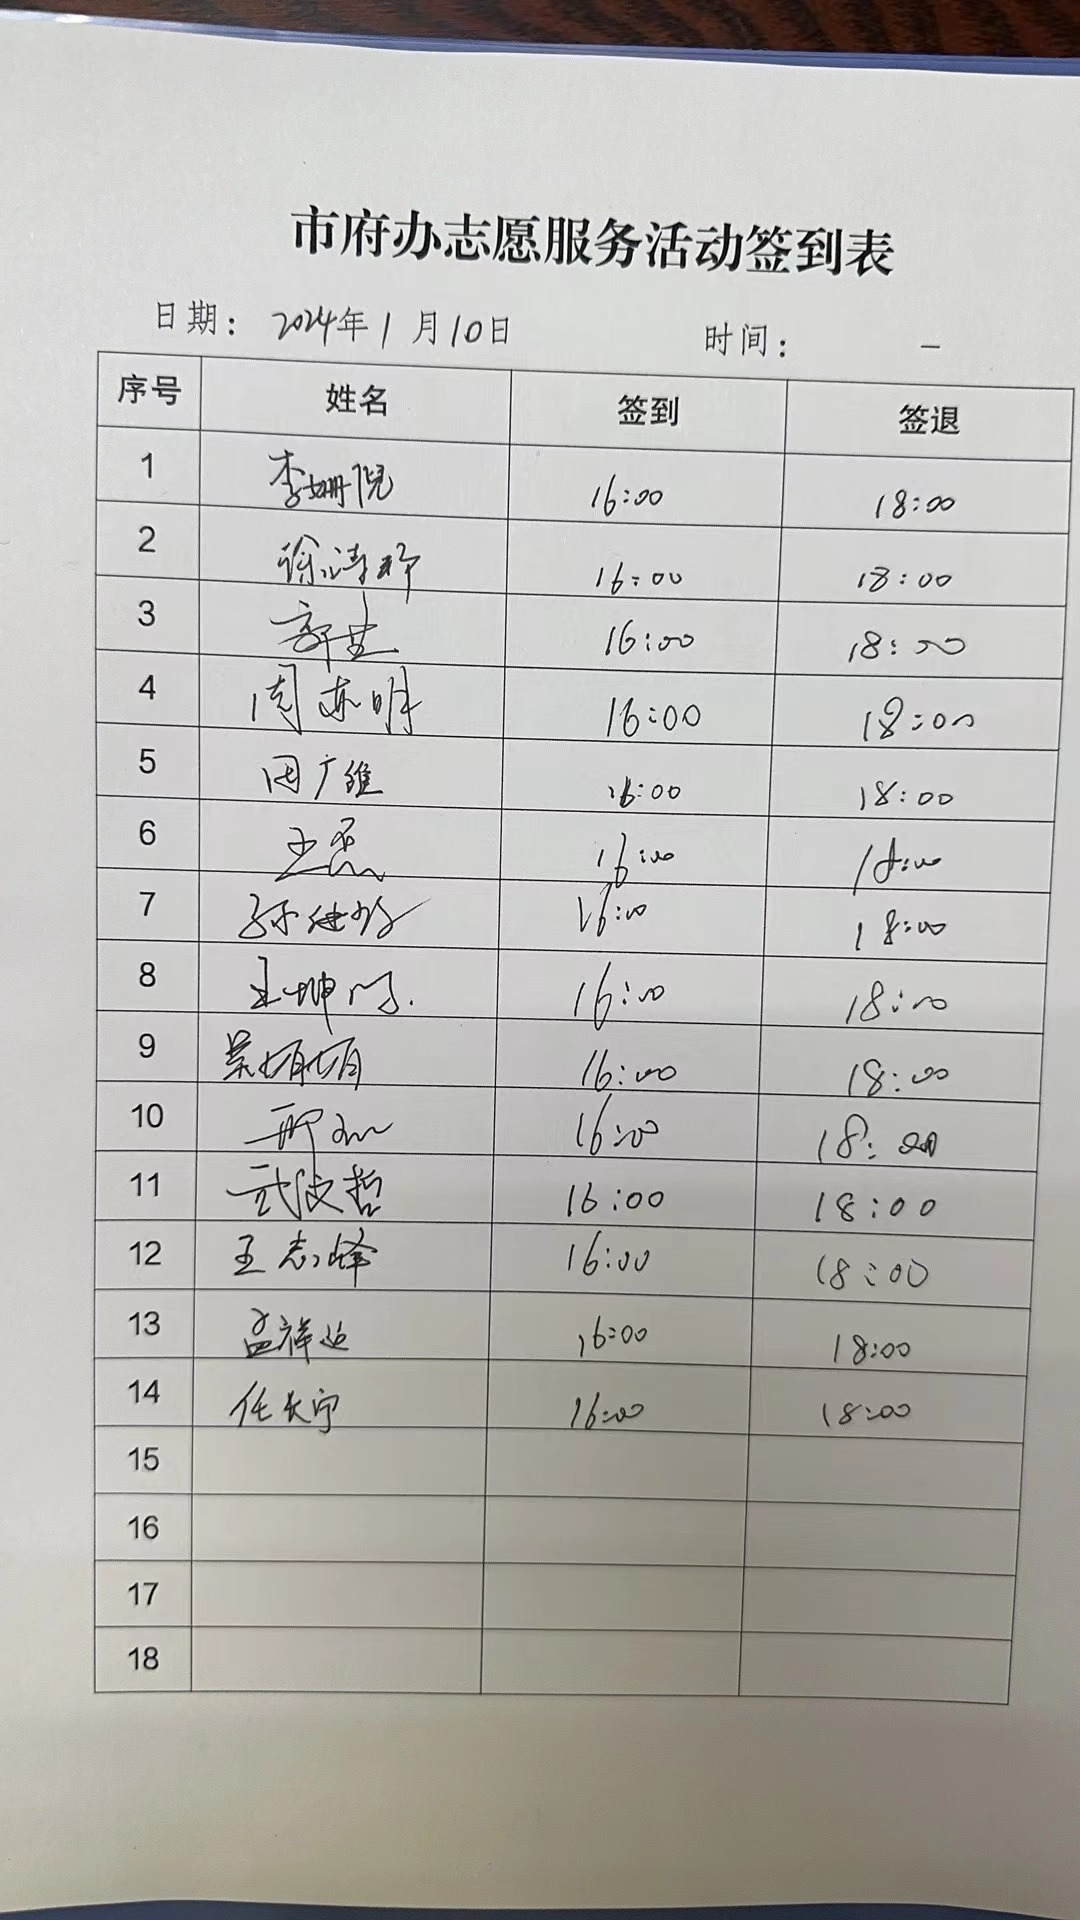 市府办志愿服务活动签到表
日期： 2024年1月10日 时间： –
序号 姓名 签到 签退
1 李姗倪 16:00 18:00
2 徐涛 16:00 18:00
3 16:00 18:00
4 周亦明 16:00 18:00
5 田广维 16:00 18:00
6 王磊 16:00 18:00
7 孙 16:00 18:00
8 王坤 16:00 18:00
9 16:00 18:00
10 16:00 18:00
11 武文哲 16:00 18:00
12 王志峰 16:00 18:00
13 孟祥 16:00 18:00
14 任长宇 16:00 18:00
15
16
17
18